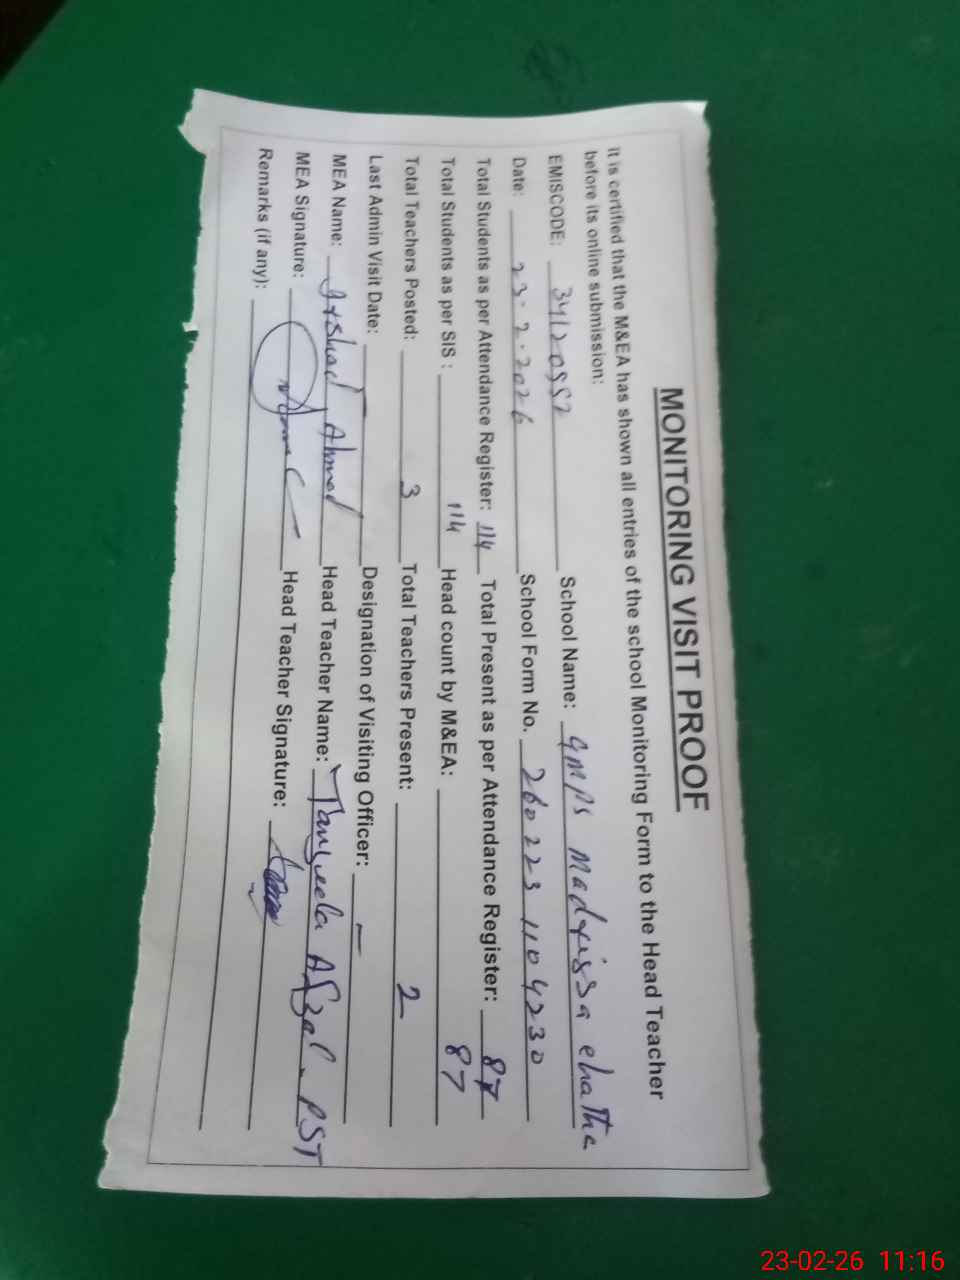 MONITORING VISIT PROOF
It is certified that the M&EA has shown all entries of the school Monitoring Form to the Head Teacher
before its online submission:
EMISCODE: 34120552 School Name: GMPS Madrissa chatha
Date: 23.2.2026 School Form No. 260223 1104230
Total Students as per Attendance Register: 114 Total Present as per Attendance Register: 87
Total Students as per SIS: 114 Head count by M&EA: 87
Total Teachers Posted: 3 Total Teachers Present: 2
Last Admin Visit Date: — Designation of Visiting Officer: —
MEA Name: Irshad Ahmed Head Teacher Name: Tanzeela Afzal - PST
MEA Signature: Head Teacher Signature:
Remarks (if any):
23-02-26 11:16